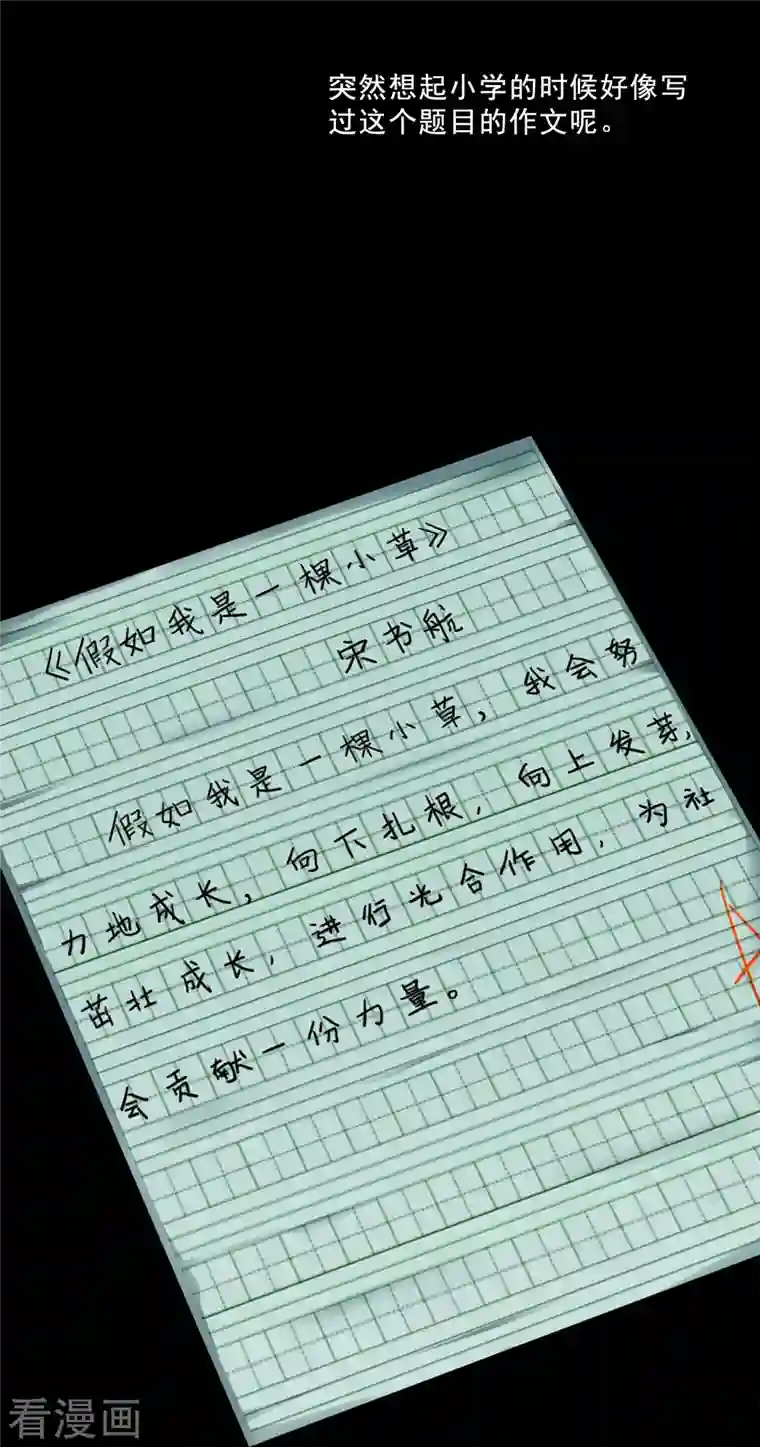 突然想起小学的时候好像写
过这个题目的作文呢。
《假如我是一棵小草》
宋书航
假如我是一棵小草，我会努
力地成长，向下扎根，向上发芽，
茁壮成长，进行光合作用，为社
会贡献一份力量。
看漫画